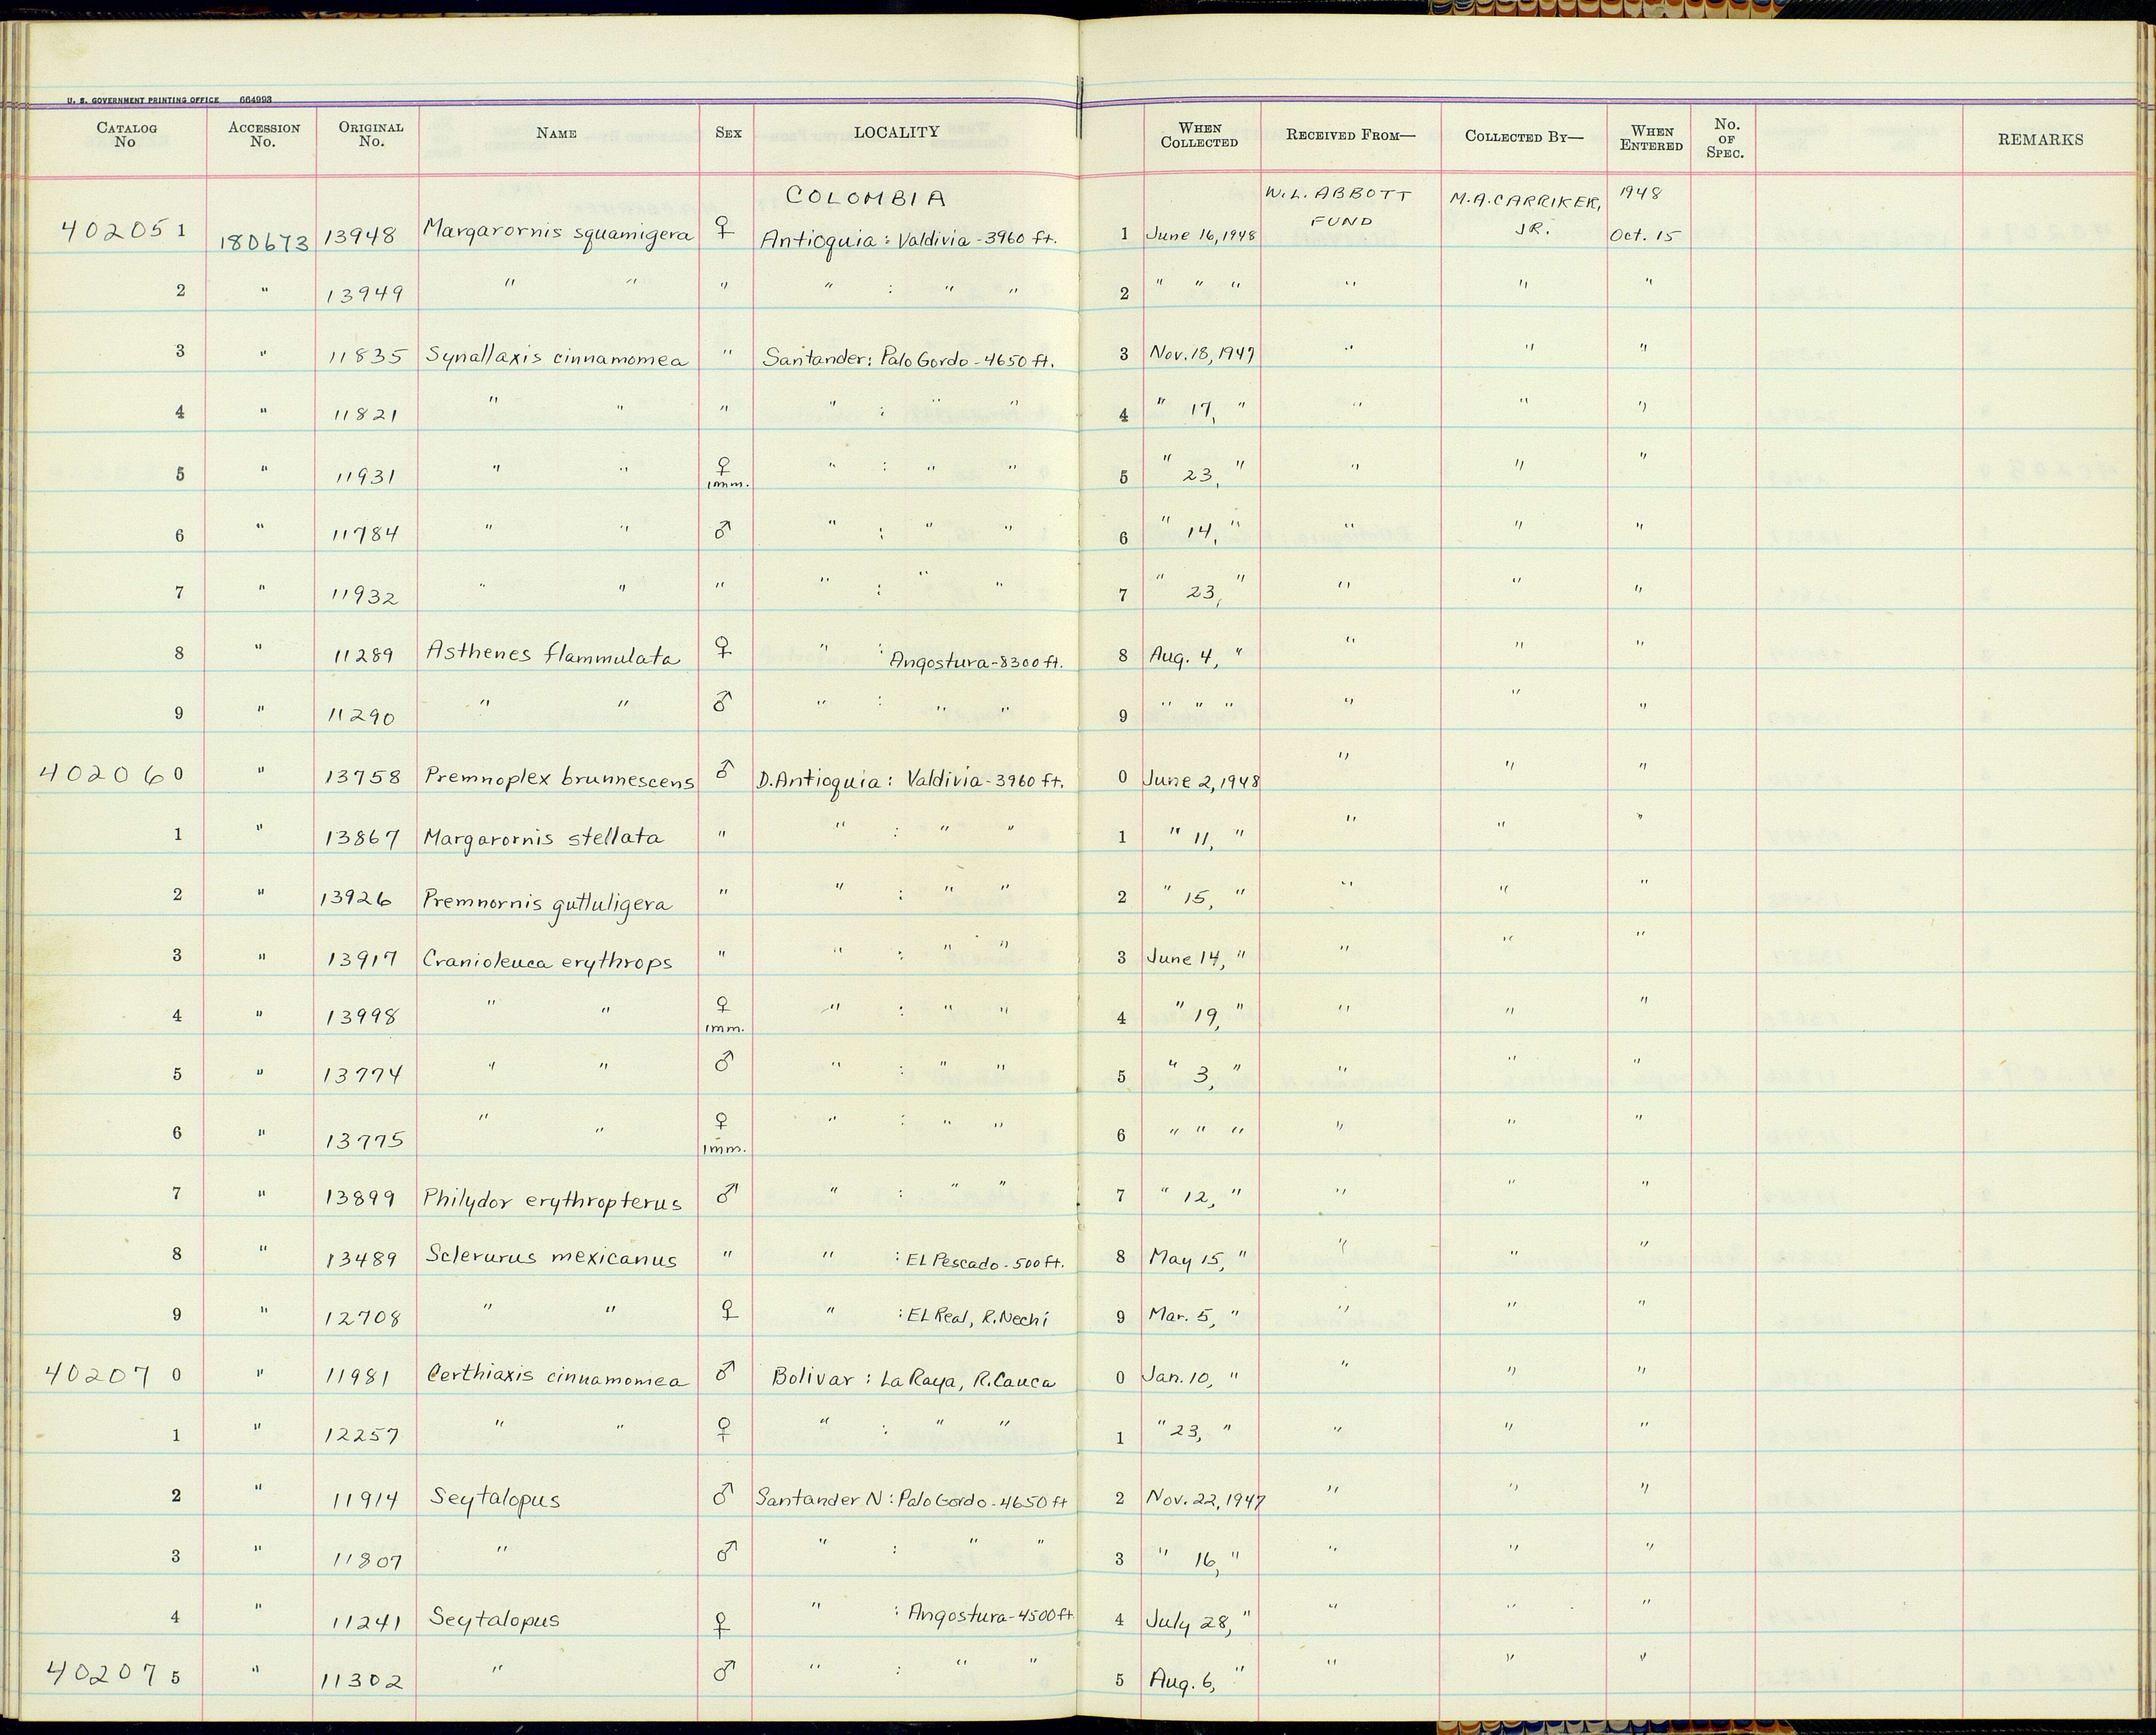 U. S. GOVERNMENT PRINTING OFFICE 664993
CATALOG No ACCESSION No. ORIGINAL No. NAME SEX LOCALITY WHEN COLLECTED RECEIVED FROM— COLLECTED BY— WHEN ENTERED No. OF SPEC. REMARKS
COLOMBIA W. L. ABBOTT FUND M. A. CARRIKER, JR. 1948
402051 180673 13948 Margarornis squamigera ♀ Antioquia : Valdivia - 3960 ft. 1 June 16, 1948 Oct. 15
2 " 13949 " " " " : " " 2 " " " " " "
3 " 11835 Synallaxis cinnamomea " Santander : Palo Gordo - 4650 ft. 3 Nov. 18, 1947 " " "
4 " 11821 " " " " : " " 4 " 17, " " " "
5 " 11931 " " ♀ imm. " : " " 5 " 23, " " " "
6 " 11784 " " ♂ " : " " 6 " 14, " " " "
7 " 11932 " " " " : " " 7 " 23, " " " "
8 " 11289 Asthenes flammulata ♀ " : Angostura - 8300 ft. 8 Aug. 4, " " " "
9 " 11290 " " ♂ " : " " 9 " " " " " "
402060 " 13758 Premnoplex brunnescens ♂ D. Antioquia : Valdivia - 3960 ft. 0 June 2, 1948 " " "
1 " 13867 Margarornis stellata " " : " " 1 " 11, " " " "
2 " 13926 Premnornis guttuligera " " : " " 2 " 15, " " " "
3 " 13917 Cranioleuca erythrops " " : " " 3 June 14, " " " "
4 " 13998 " " ♀ imm. " : " " 4 " 19, " " " "
5 " 13774 " " ♂ " : " " 5 " 3, " " " "
6 " 13775 " " ♀ imm. " : " " 6 " " " " " "
7 " 13899 Philydor erythropterus ♂ " : " " 7 " 12, " " " "
8 " 13489 Sclerurus mexicanus " " : EL Pescado - 500 ft. 8 May 15, " " " "
9 " 12708 " " ♀ " : EL Real, R. Nechi 9 Mar. 5, " " " "
402070 " 11981 Certhiaxis cinnamomea ♂ Bolivar : La Raya, R. Cauca 0 Jan. 10, " " " "
1 " 12257 " " ♀ " : " " 1 " 23, " " " "
2 " 11914 Scytalopus ♂ Santander N : Palo Gordo - 4650 ft 2 Nov. 22, 1947 " " "
3 " 11807 " ♂ " : " " 3 " 16, " " " "
4 " 11241 Scytalopus ♀ " : Angostura - 4500 ft 4 July 28, " " " "
402075 " 11302 " ♂ " : " " 5 Aug. 6, " " " "